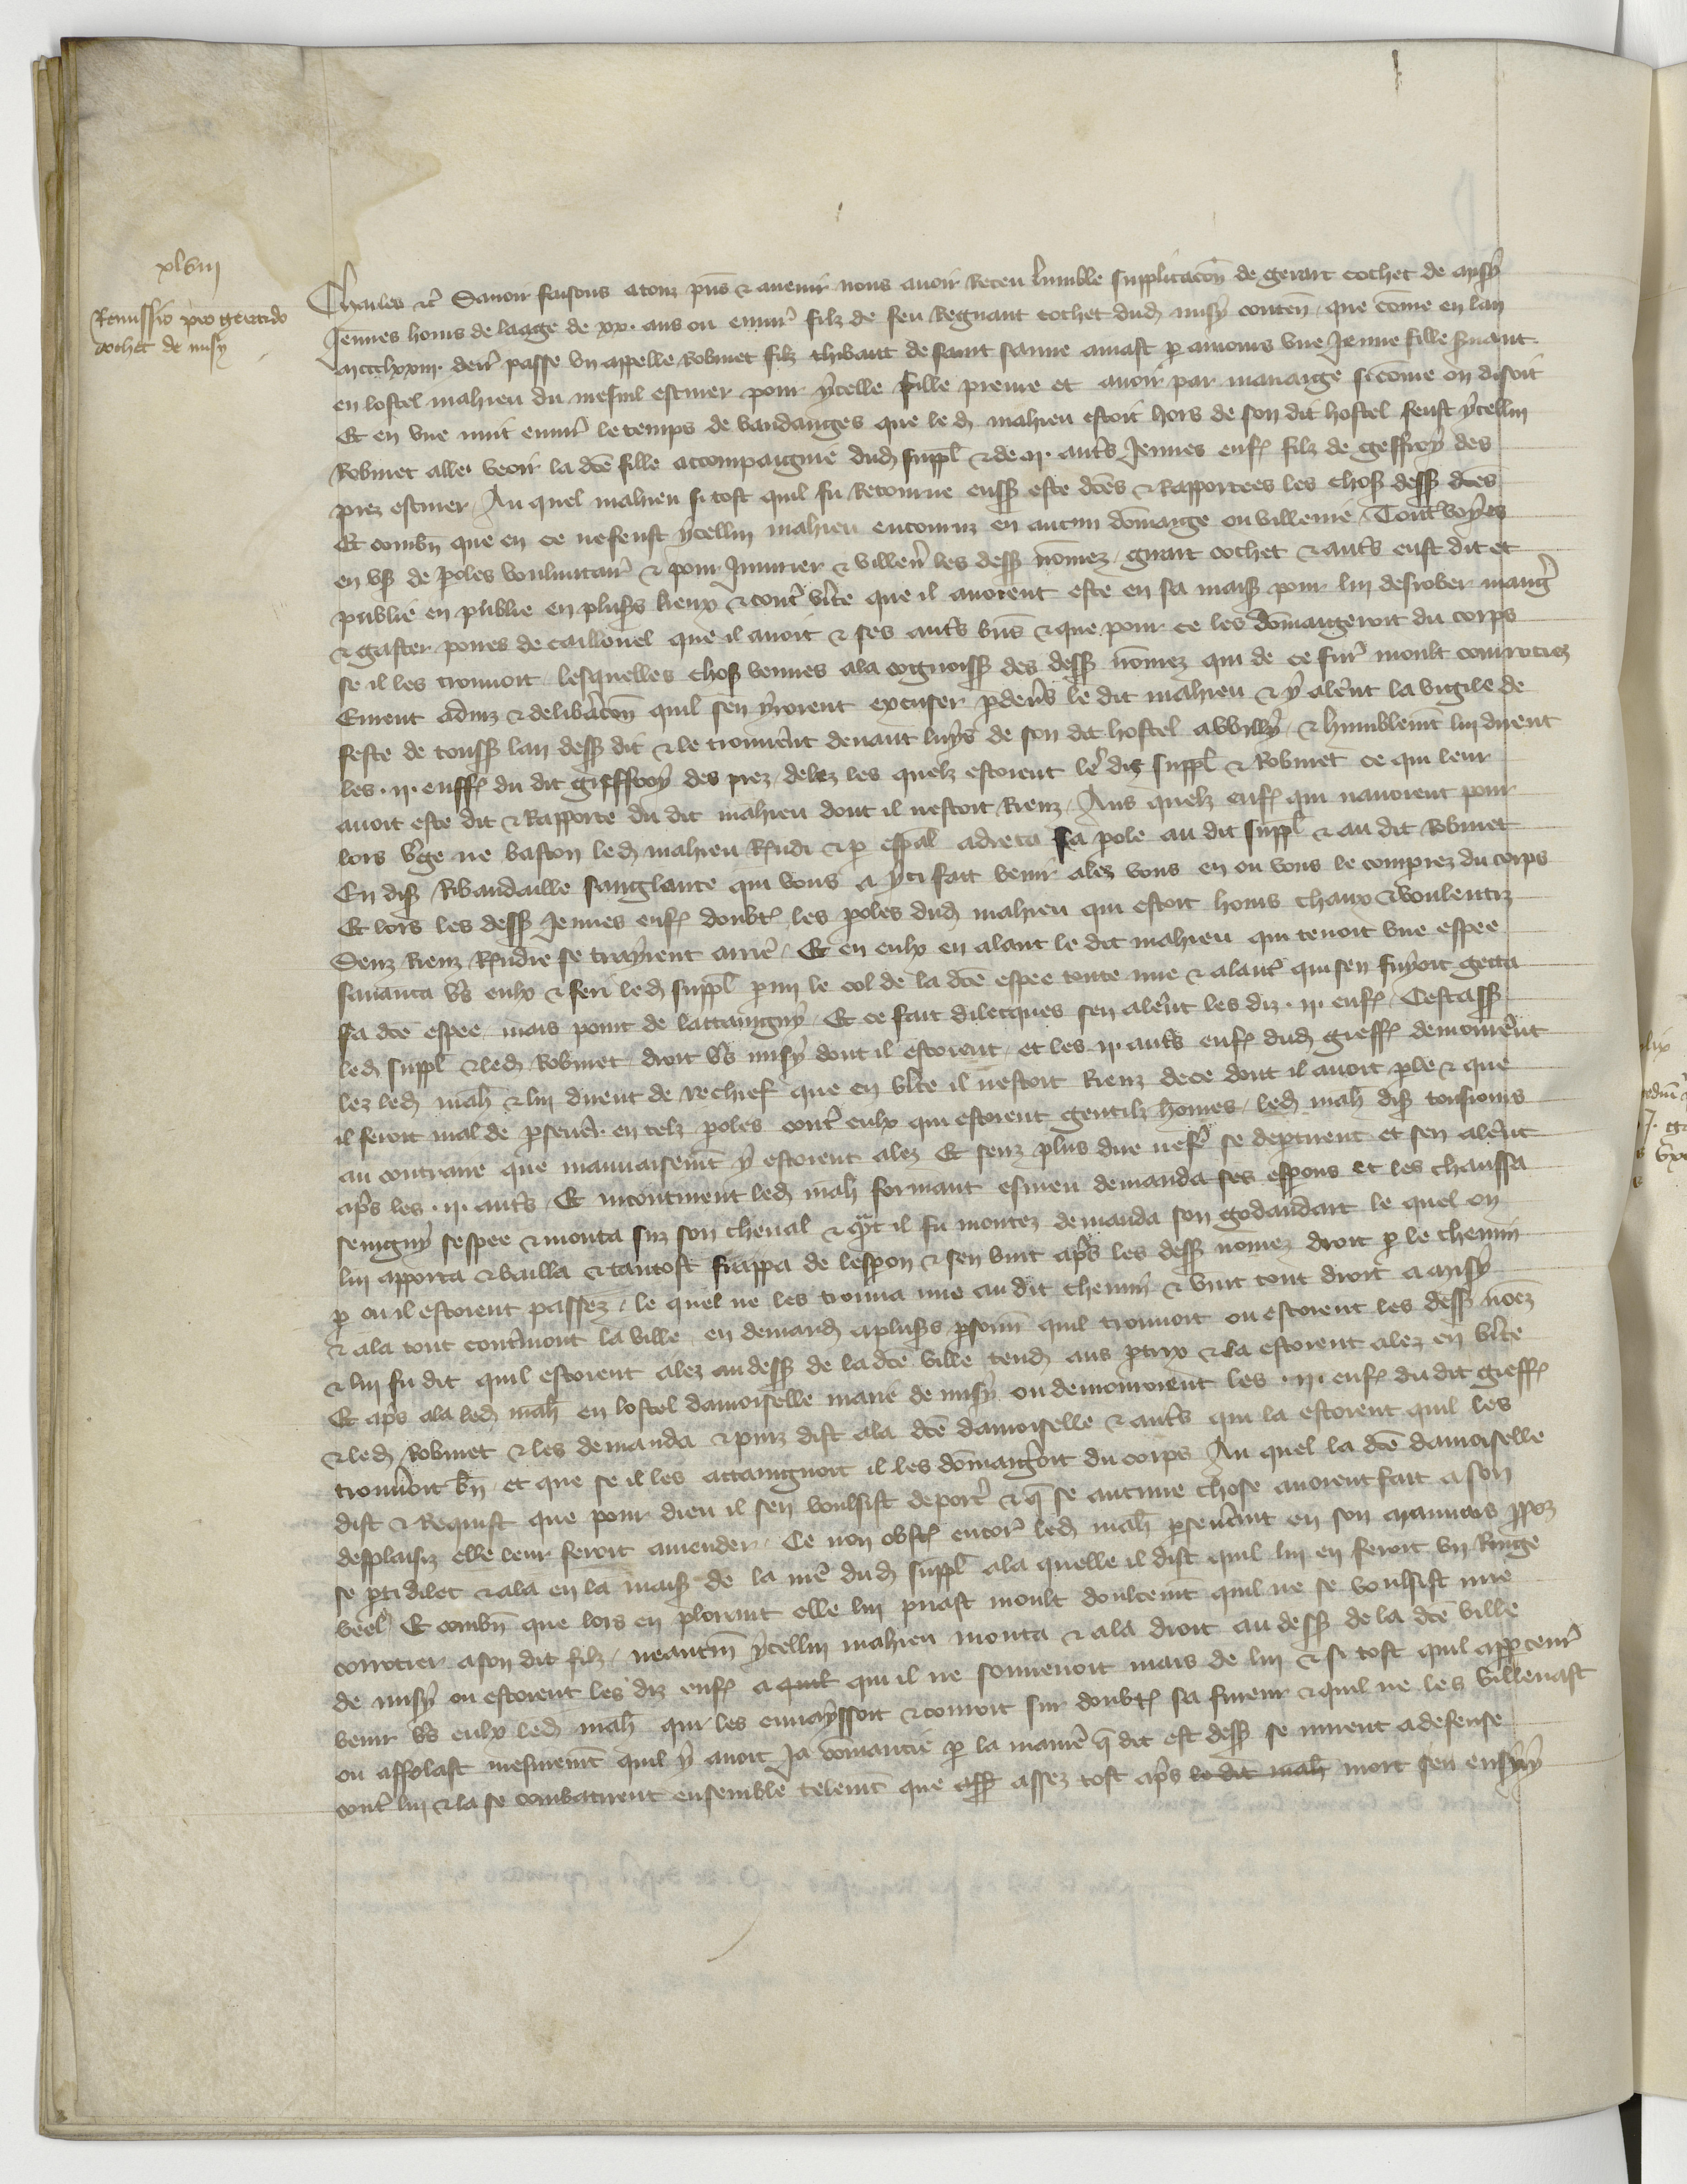 xlviii
Remissio pro gerardo
cochet de misy
Charles &c̃ Savoir faisons a touz p̃ns & avenir nous avoir Receu lumble supplicac̃on de gerart cochet de misy
Jennes homs de laage de xx. ans ou enuir̃ filz de feu Regnaut cochet dud misy conten̄ que cõme en lan
mccclxxiii. den̄r passe vn appelle Robinet filz thibaut de saint sanne amast p̲ amours vne Jenne fille s̃uant
en lostel mahieu du mesnil escuier pour ycelle fille prenre et avoir par mariage si cõme on disoit
Et en vne nuit enuir̃ le temps de vandanges que le d mahieu estoit hors de son dit hostel feust ycellui
Robinet alle veoir la dc̃e fille accompaignie dud suppl̃ & de .ii. aut̃s Jennes enf filz de geffroy des
prez escuier Au quel mahieu si tost quil fu Retourne euss este dc̃es & Rapportees les chos dess dc̃es
Et comb̄n que en ce ne feust ycellui mahieu encouruz en aucun dõmaige ou villenie Tout̃voyes
en vs de p̲oles voluntair̃ & pour Jniurier & villen̄r les dess nõmez girart cochet & aut̃s eust dit et
publie en publie en plus̃s lieux & cont̃ v̄ite que il avoient este en sa mais pour lui desrober mang̃
& gaster poires de caillouel que il avoit & ses aut̃s biñs & que pour ce les dõmaigeroit du corps
se il les trouvoit lesquelles chos venues a la cognoiss des dess nõmez qui de ce fur̃ moult courrouciez
Eurent adviz & deliber̃ac̃on quil sen yroient excuser p̲dev̄s le dit mahieu & y aler̃nt la vigile de
feste de touss lan dess dit & le trouver̃nt devant luys de son dit hostel a villy & humblemt̃ lui dirent
les .ii. enff du dit gieffroy des prez delez les quelz estoient le dit suppl̃ & Robinet ce qui leur
avoit este dit & Rapporte du dit mahieu dont il nestoit Rienz Aus quelz enf qui navoient pour
lors v̄ge ne baston led mahieu R̄ndi & p̲ esp̄al adreca sa p̲ole au dit suppl̃ & au dit Robinet
En dis Ribaudaille sanglante qui vous a yci fait venir alez vous en ou vous le comprez du corps
Et lors les dess Jennes enf doubt les p̲oles dud mahieu qui estoit homs chaux & voulentiz
Senz Rienz R̄ndre se trayrent arrie Et en eulx en alant le dit mahieu qui tenoit vne espee
savanca v̄s eulx & feri led suppl̃ p̲mi le col de la dc̃e espee toute nue & a laut̃ qui sen fuyoit getta
sa dc̃e espee mais point de lattaigny Et ce fait dilecques sen aler̃nt les diz .ii. enf Cestass
led suppl̃ & led Robinet droit v̄s misy dont il estoient et les .ii. aut̃s enf dud gieff demourer̃nt
lez led mah̄ & lui dirent de rechief que en v̄ite il nestoit Rienz de ce dont il avoit p̲le & que
il feroit mal de p̲sever̃ en telz p̲oles cont̃ eulx qui estoient gentilz hõmes led mah̄ dis tousiours
au contraire que mauvaisemt̃ y estoient alez Et senz plus dire ne f̃e se dep̲tirent et sen aler̃nt
ap̃s les .ii. aut̃s Et incontinent led mah̄ formant esmeu demanda ses esp̲ons et les chaussa
seingny sespee & monta sur son cheval & q̃nt il fu montez demanda son godandart le quel on
lui apporta & bailla & tantost frappa de lesp̲on & sen vint ap̃s les dess nõmez droit p̲ le chemin
p̲ ou il estoient passez le quel ne les trouva mie au dit chemin & vint tout droit a misy
& ala tout contremont la ville en demand a plus̃s p̲sonn̄ quil trouvoit ou estoient les dess nõez
& lui fu dit quil estoient alez au dess de la dc̃e ville tend aus p̲trix & la estoient alez en v̄ite
Et ap̃s ala led mah̄ en lostel damoiselle marie de misy ou demouroient les .ii. enf du dit gieff
& led Robinet & les demanda & puiz dist a la dc̃e damoiselle & aut̃s qui la estoient quil les
trouver̃oit b̄n et que se il les attaingnoit il les dõmaig̃oit du corps Au quel la dc̃e damoiselle
dist & Requist que pour dieu il sen voulsist deport̃ & q̃ se aucune chose avoient fait a son
desplaisir elle leur feroit amender Ce non obst encor̃ led mah̄ p̲sever̃nt en son mauvais p̲poz
se p̲ti dilec & ala en la mais de la me dud suppl̃ a la quelle il dist quil lui en feroit vn Ringe
veel Et comb̄n que lors en plorant elle lui priast moult doulcemt̃ quil ne se voulsist mie
corrocier a son dit filz neantm̄ ycellui mahieu monta & ala droit au dess de la dc̃e ville
de misy ou estoient les diz enf a qui il ne souvenoit mais de lui & si tost quil app̲ceur̃
venir v̄s eulx led mah̄ qui les envayssoit & couroit sur doubt sa fureur & quil ne les villenast
ou affolast mesmemt̃ quil y avoit Ja cõmancie p̲ la manie q̃ dit est dess se mirent a defense
cont̃ lui & la se combatirent ensemble telemt̃ que assez tost ap̃s le dit mah̄ mort sen ensuy